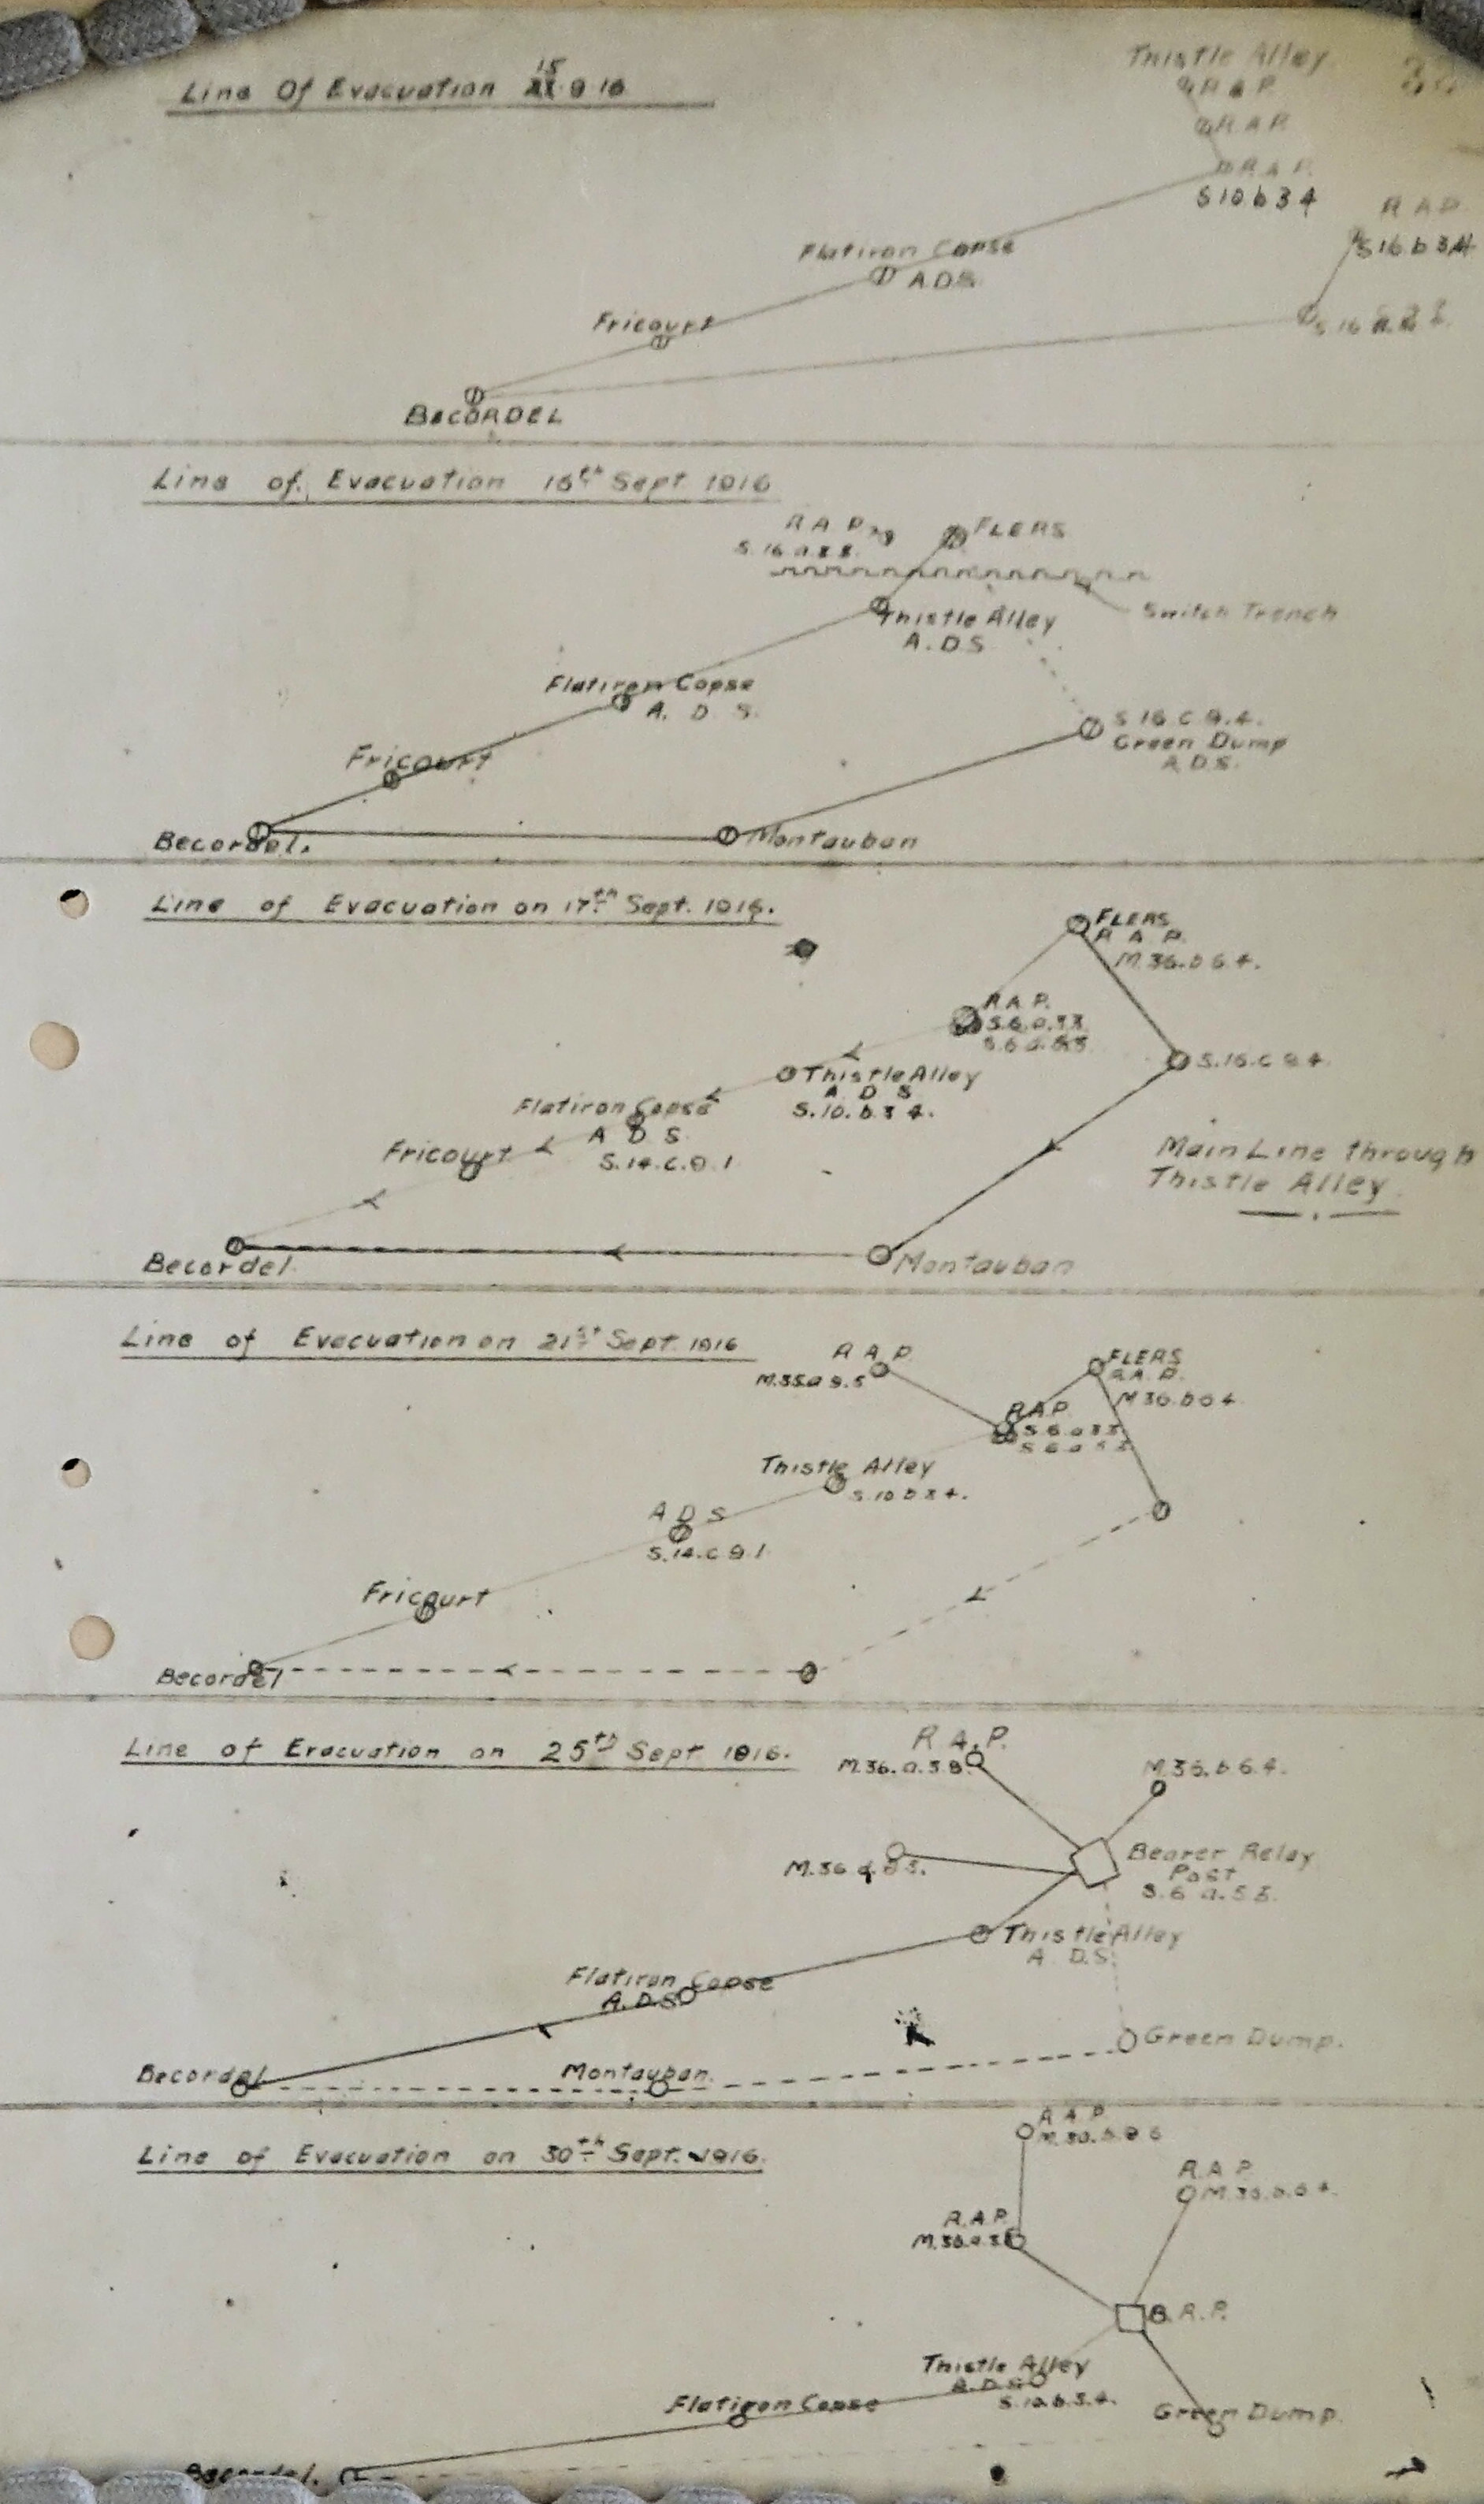 Line Of Evacuation 15 9 16
Thistle Alley
R A P.
R. A. P.
R A P.
S 10. b 3 4
R A P.
S 16. b 3.4
S 16
Flatiron Copse
A.D.S.
Fricourt
BECORDEL
Line of Evacuation 16th Sept. 1916
R A P
FLERS
Switch Trench
Thistle Alley
A. D. S.
Flatiron Copse
A. D. S.
S 16 C 9.4.
Green Dump
A.D.S.
Fricourt
Becordel.
Montauban
Line of Evacuation on 17th Sept. 1916.
FLERS
R A P.
M. 36. b 6. 4.
R.A.P.
S. 6. a. 3 3.
Thistle Alley
A D S
S. 10. b. 3 4.
S. 16. c 9 4
Flatiron Copse
A D S.
S. 14. C. 9. 1
Fricourt
Main Line through
Thistle Alley.
Becordel.
Montauban
Line of Evacuation on 21st Sept. 1916
R A P.
M. 35. a 9. 5
FLERS
R.A. P.
M 36. b 6 4.
R.A.P.
S 6. a 3 3.
Thistle Alley
S. 10 b 3 4.
A D S
S. 14. c 9. 1
Fricourt
Becordel
Line of Evacuation on 25th Sept 1916.
R. A. P.
M. 36. a. 3. 8.
M. 36. b 6. 4.
Bearer Relay
Post
S. 6 a. 5 3.
M. 36
Thistle Alley
A. D.S.
Flatiron Copse
A. D. S.
Green Dump.
Becordel
Montauban.
Line of Evacuation on 30th Sept. 1916.
R A P
M. 30.
R. A P.
M. 36. b. 6 4.
R.A.P.
M. 36. a. 3.8
B. R. P.
Thistle Alley
A. D. S
S. 10. b. 3. 4.
Flatiron Copse
Green Dump.
Becordel.